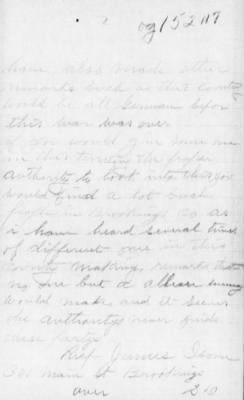 og 15247
have also made other
remarks such as that country
would be all German befor
this war was over
if you would give some one
in this territory the proper
authority to look into this you
would find a lot such
people in Brookings Co as
i have heard several times
of different ones in this
county making remarks that
no one but a alien enemy
would make and it seems
the authoritys never finds
these partys
Resp James
301 Main St Brookings
over S D